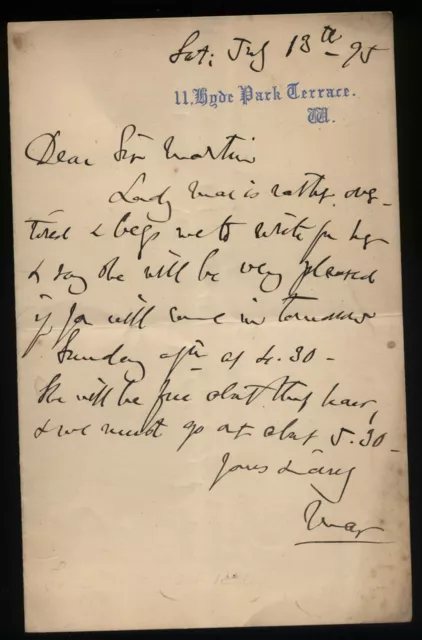 Sat: July 13th 95
11. Hyde Park Terrace.
W.
Dear Sir Martin
Lady Mar is rather over-
tired & begs me to write for her
& say she will be very pleased
if you will come in tomorrow
Sunday aftn at 4.30 -
She will be free about that hour,
& we must go at abt 5.30 -
Yours sincerely
Mar